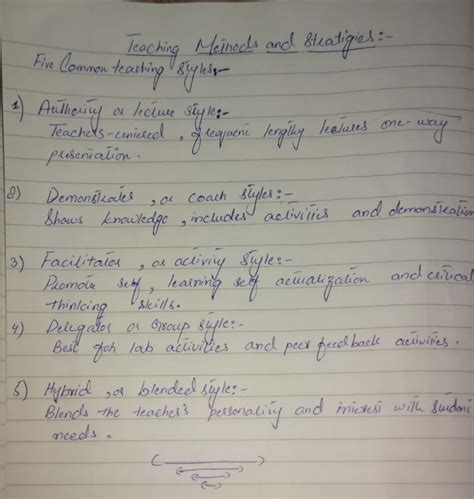 Teaching Methods and Stratigies:-
Five Common teaching Styles:-
1) Authority or lecture style:-
Teachers-centered, frequent lengthy lectures one-way
presentation.
2) Demonstrates, or coach styles:-
Shows knowledge, includes activities and demonstration
3) Facilitator, or activity style:-
Promote self, learning self actualization and critical
thinking skills.
4) Delegator or Group style:-
Best for lab activities and peer feedback activities.
5) Hybrid, or blended style:-
Blends the teacher's personality and interest with
needs.